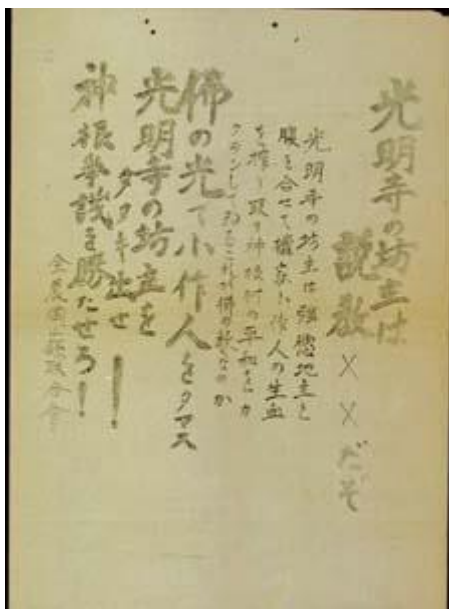 光明寺の坊主は
説教××だぞ
光明寺の坊主は強慾地主と
腹を合せて擬装小作人の生血
を搾り取り神根村の平和をカ
クランしてゐるこれが佛の教へなのか
佛の光で小作人をダマス
光明寺の坊主を
タタキ出せ!
神根争議を勝たせろ!
全農